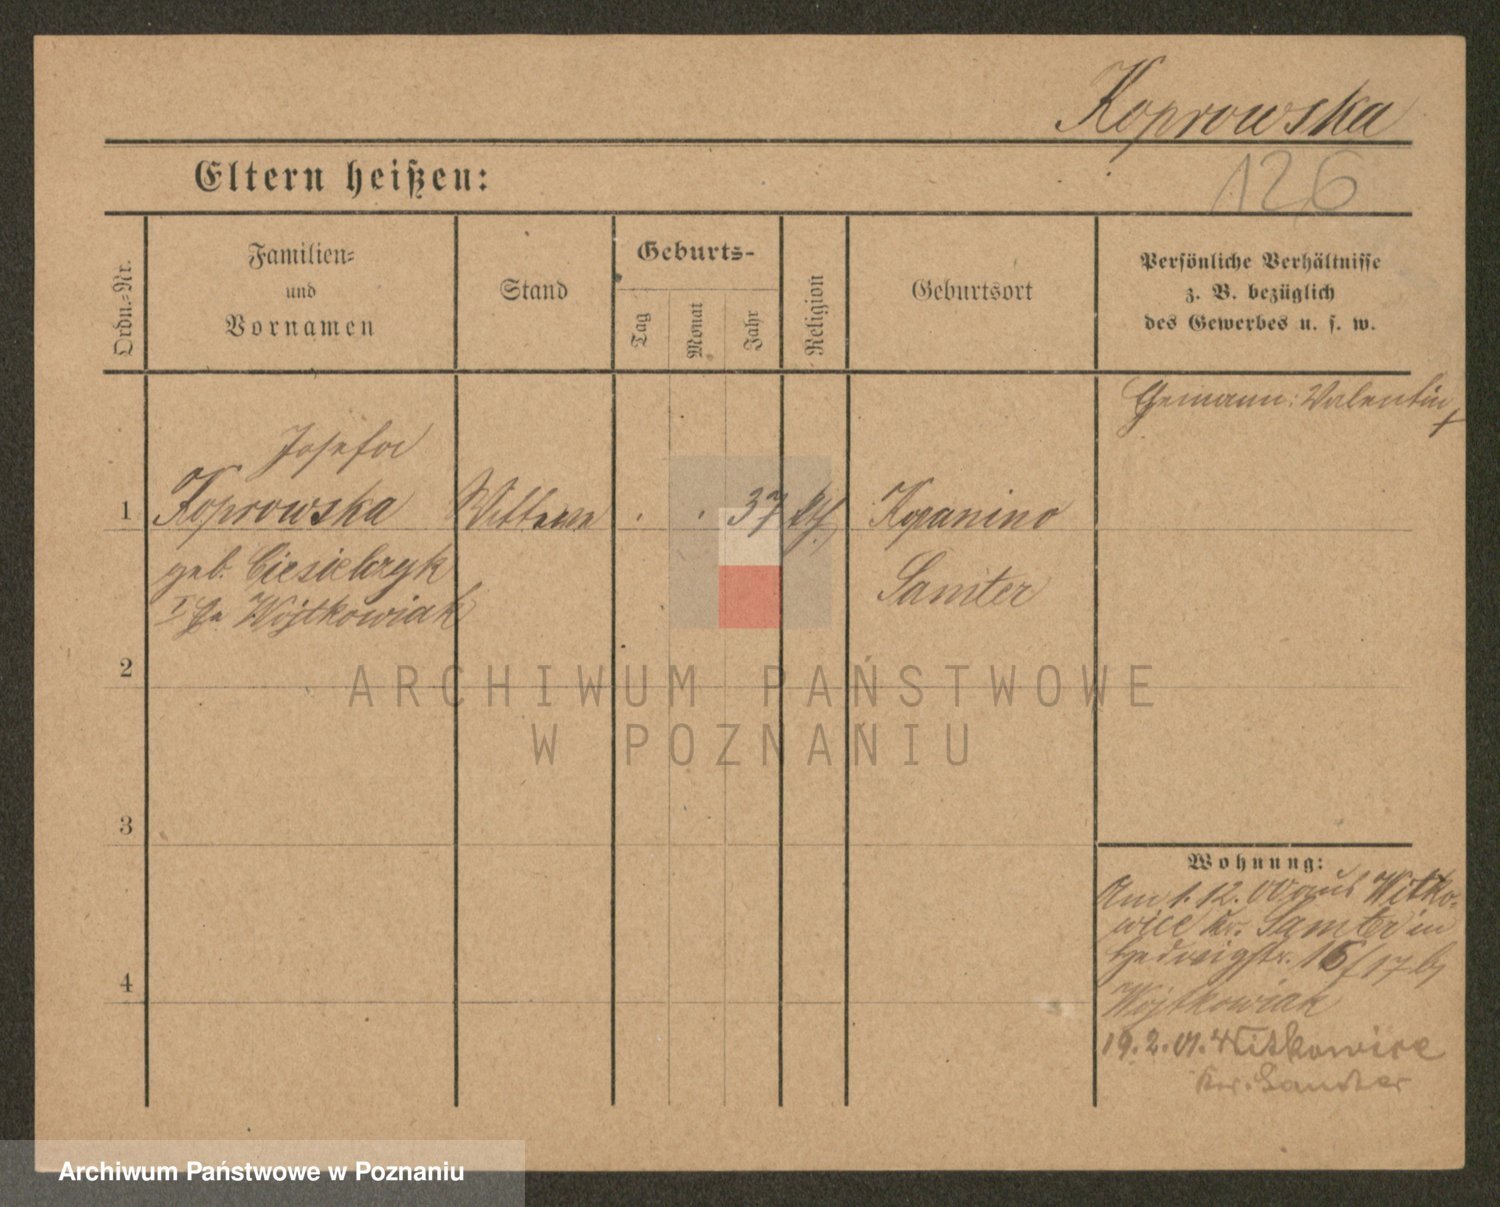 Koprowska
Eltern heißen:
126
Ordn.-Nr.
Familien-
und
Vornamen
Stand
Geburts-
Tag
Monat
Jahr
Religion
Geburtsort
Persönliche Verhältnisse
z. B. bezüglich
des Gewerbes u. s. w.
Valentin +
Josefa
1 Koprowska Wittwe . . 37 kth Kopanino
geb. Ciesielczyk Samter
Wojtkowiak
2
ARCHIWUM PAŃSTWOWE
W POZNANIU
3
Wohnung:
Am 1. 12. 00 aus Witko-
wice Kr. Samter in
Hedwigstr. 16/17 bei
Wojtkowiak
4
19. 2. 01. Witkowice
Kr. Samter
Archiwum Państwowe w Poznaniu